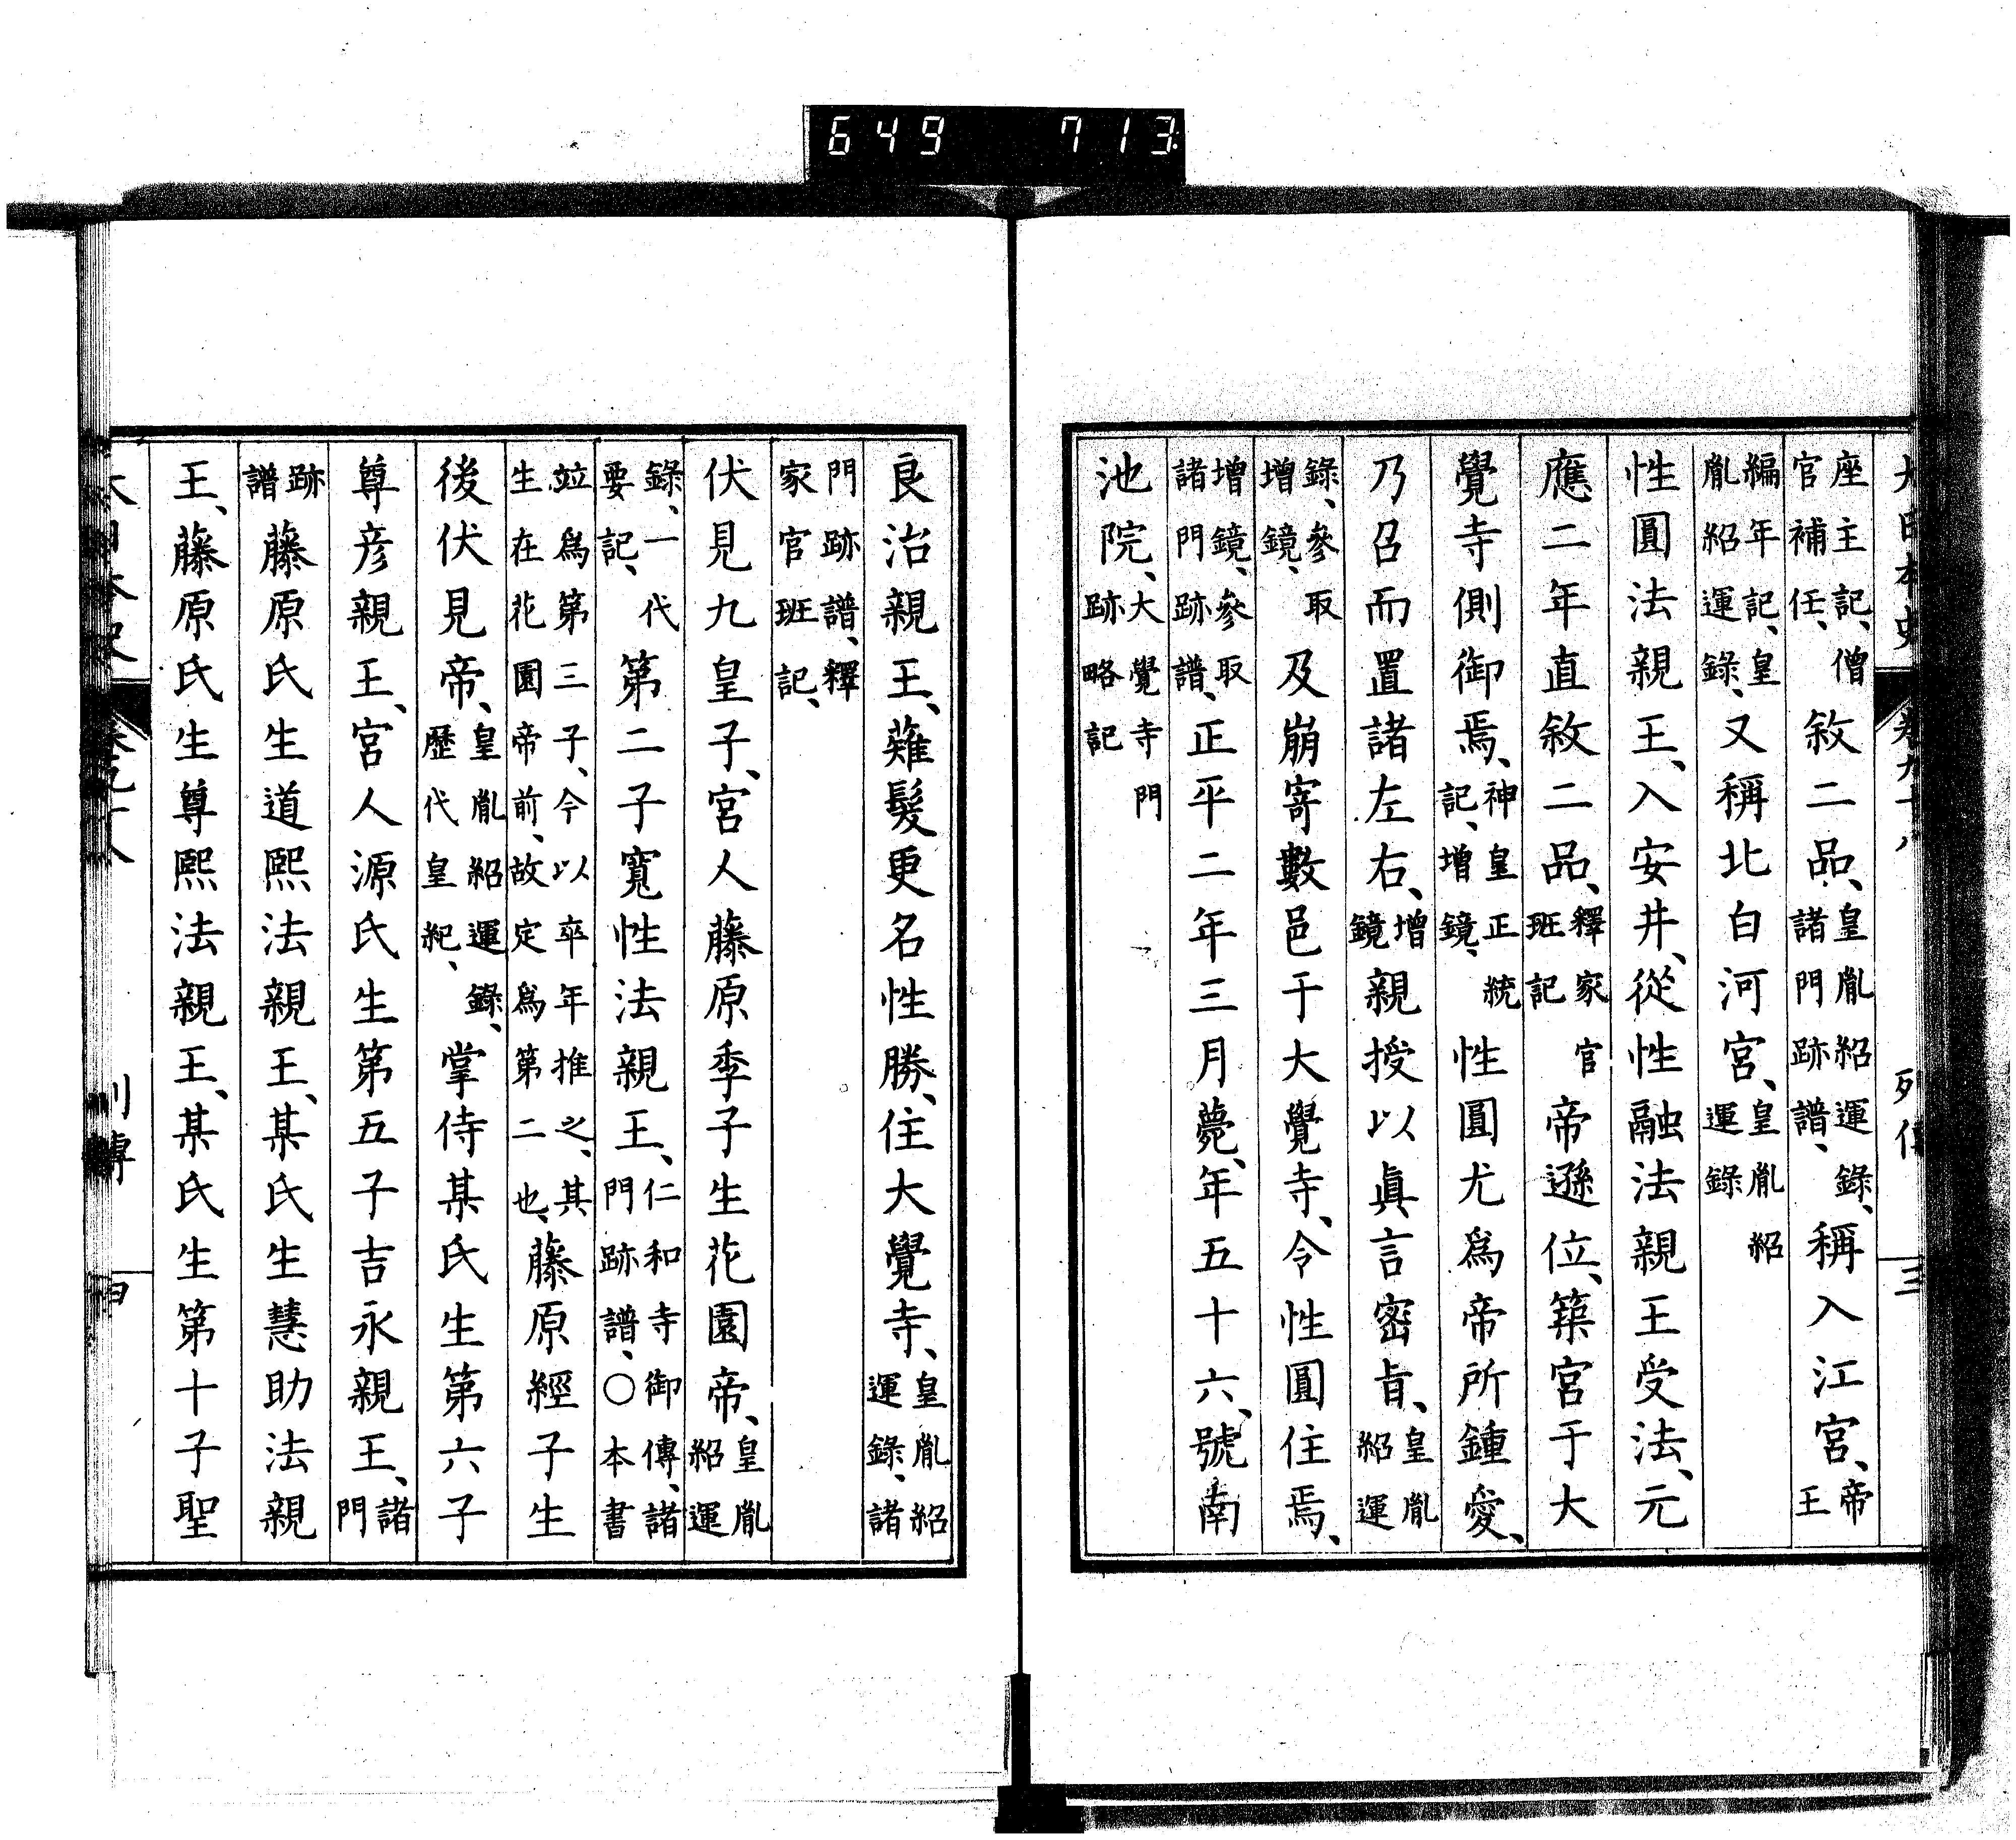 649 713
大日本史 卷九十八 列傳 三
座主記、僧官補任、敘二品、皇胤紹運錄、諸門跡譜、稱入江宮、帝王
編年記、皇胤紹運錄、又稱北白河宮、皇胤紹運錄
性圓法親王、入安井、從性融法親王受法、元
應二年直敘二品、釋家官班記帝遜位、築宮于大
覺寺側御焉、神皇正統記、增鏡、性圓尤爲帝所鍾愛、
乃召而置諸左右、增鏡親授以眞言密旨、皇胤紹運
錄、參取增鏡、及崩寄數邑于大覺寺、令性圓住焉、
增鏡、參取諸門跡譜、正平二年三月薨、年五十六、號南
池院、大覺寺門跡略記
良治親王、薙髮更名性勝、住大覺寺、皇胤紹運錄、諸
門跡譜、釋家官班記、
伏見九皇子、宮人藤原季子生花園帝、皇胤紹運
錄、一代要記、第二子寬性法親王、仁和寺御傳、諸門跡譜、○本書
竝爲第三子、今以卒年推之、其生在花園帝前、故定爲第二也、藤原經子生
後伏見帝、皇胤紹運錄、歷代皇紀、掌侍某氏生第六子
尊彦親王、宮人源氏生第五子吉永親王、諸門
跡譜藤原氏生道熙法親王、某氏生慧助法親
王、藤原氏生尊熙法親王、某氏生第十子聖
大日本史 卷九十八 列傳 四